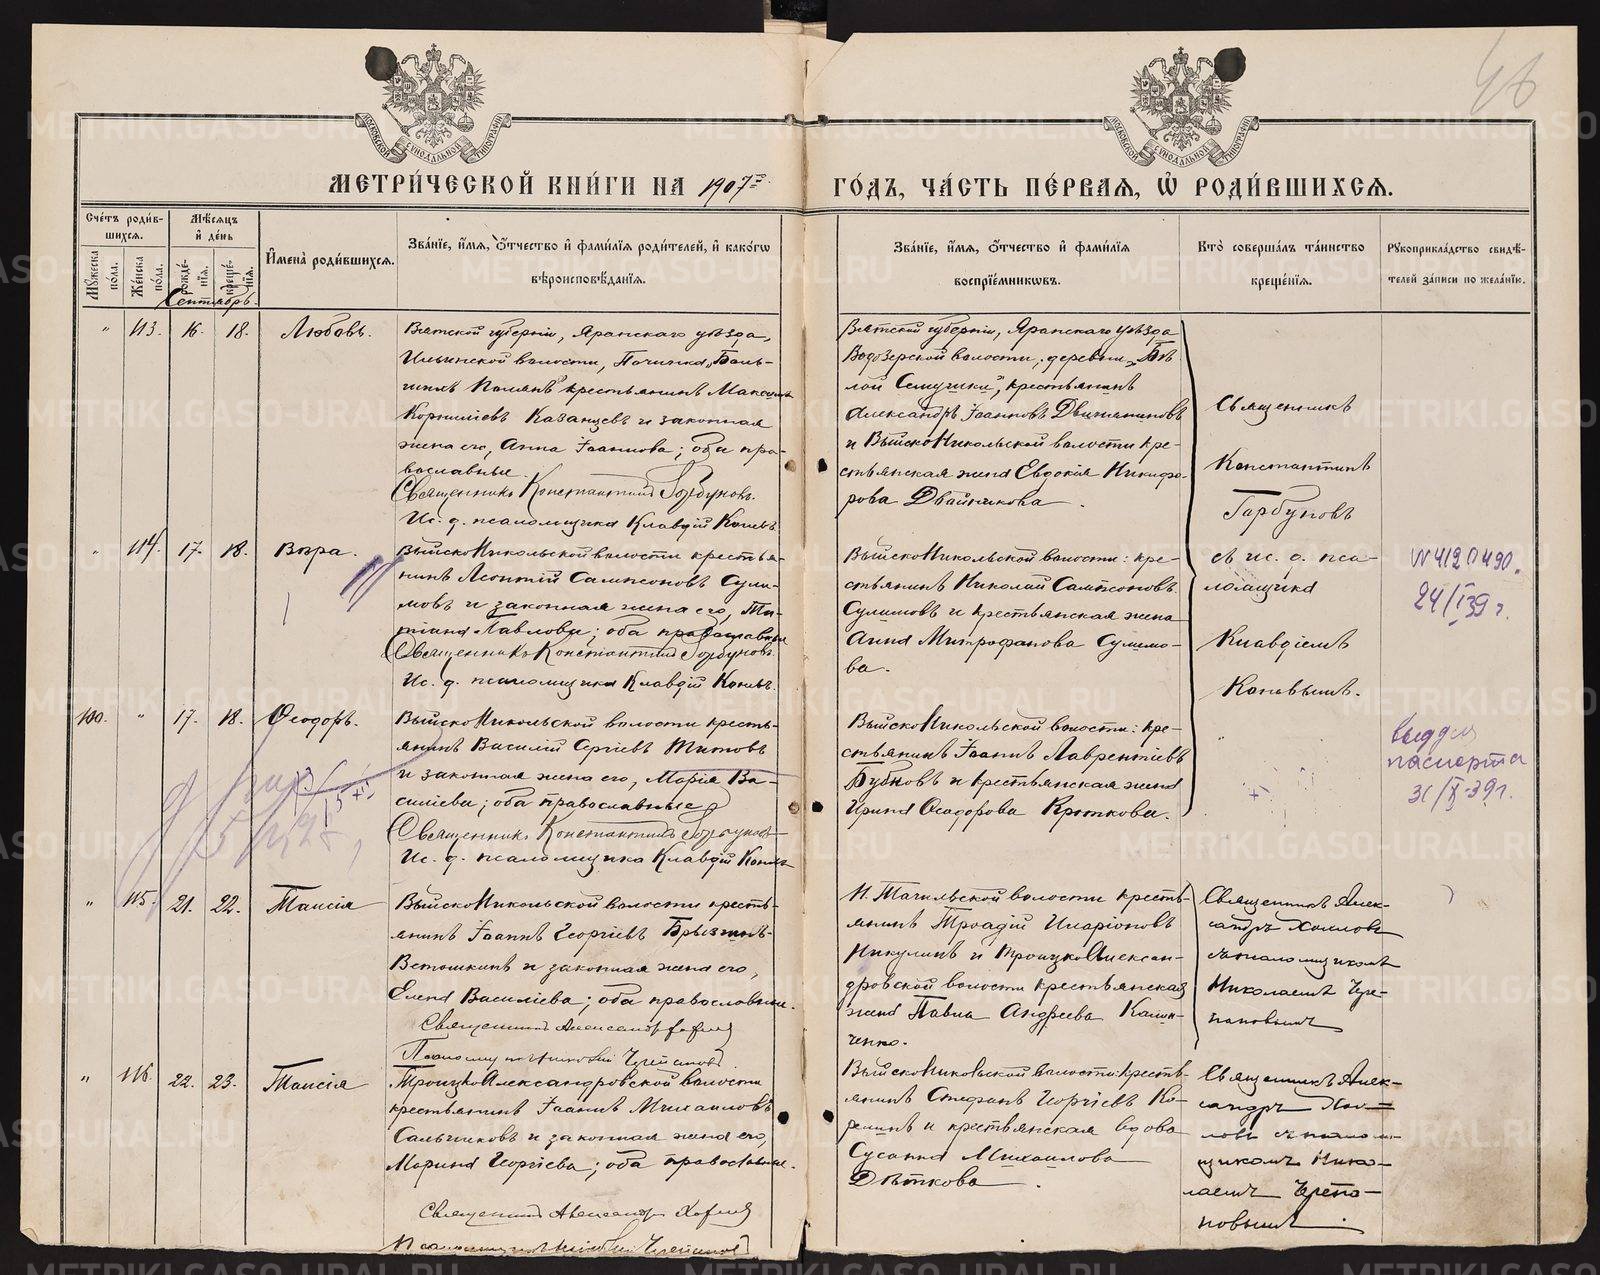 46
МОСКОВСКОЙ СѴНОДАЛЬНОЙ ТИПОГРАФІИ
МОСКОВСКОЙ СѴНОДАЛЬНОЙ ТИПОГРАФІИ
МЕТРИ́ЧЕСКОЙ КНИ́ГИ НА 1907й
ГО́ДЪ, ЧА́СТЬ ПЕ́РВАЯ, Ѡ҆ РОДИ́ВШИХСЯ.
Сче́тъ роди́в-
шихся.
Мѣ́сяцъ
и҆ де́нь
Му́жеска
по́ла.
Же́нска
по́ла.
рожде́-
нїя.
креще́-
нїя.
И҆мена̀ роди́вшихся.
Зва́нїе, и҆́мя, ѻ҆́тчество и҆ фами́лїя роди́телей, и҆ како́гѡ
вѣроисповѣ́данїя.
Зва́нїе, и҆́мя, ѻ҆́тчество и҆ фами́лїя
воспрїе́мникѡвъ.
Кто̀ соверша́лъ та́инство
креще́нїя.
Рꙋкоприкла́дство свидѣ́-
телей за́писи по жела́нїю.
Сентябрь.
" 113. 16. 18. Любовь.
Вятской губерніи, Яранскаго уѣзда,
Ильинской волости, Починка „Боль-
крестьянинъ Максимъ
Корниліевъ Казанцевъ и законная
жена его, Анна Іоаннова; оба пра-
вославные.
Священникъ Константинъ Горбуновъ.
Ис. д. псаломщика Клавдій
Вятской губерніи, Яранскаго уѣзда
Водозерской волости, деревни „Бѣ-
лой крестьянинъ
Александръ Іоанновъ
и ВыйскоНикольской волости кре-
стьянская жена Евдокія Никифо-
рова Двойникова.
Священникъ
Константинъ
Горбуновъ
съ ис. д. пса-
ломщика
Клавдіемъ
" 114. 17. 18. Вѣра.
ВыйскоНикольской волости крестья-
нинъ Леонтій Сампсоновъ Сули-
мовъ и законная жена его, Та-
тіана Павлова; оба православные
Священникъ Константинъ Горбуновъ.
Ис. д. псаломщика Клавдій
ВыйскоНикольской волости: кре-
стьянинъ Николай Сампсоновъ
Сулимовъ и крестьянская жена
Анна Митрофанова Сулимо-
ва.
N 4120490.
24/I 39 г.
100. " 17. 18. Ѳеодоръ.
ВыйскоНикольской волости кресть-
янинъ Василій Сергіевъ Титовъ
и законная жена его, Марія Ва-
силіева; оба православные
Священникъ Константинъ Горбуновъ
Ис. д. псаломщика Клавдій
ВыйскоНикольской волости: кре-
стьянинъ Іоаннъ Лаврентіевъ
Бубновъ и крестьянская жена
Ирина Ѳеодорова Кроткова.
выдан
паспорта
31/X-39г.
" 115. 21. 22. Таисія
ВыйскоНикольской волости кресть-
янинъ Іоаннъ Георгіевъ
Ветошкинъ и законная жена его,
Елена Василіева; оба православные.
Священникъ Александръ
Псаломщикъ Николай Черепановъ
Н. Тагильской волости кресть-
янинъ Иларіоновъ
Никулинъ и ТроицкоАлексан-
дровской волости крестьянская
жена Павла Андреева Калин-
ченко.
Священникъ Алек-
сандръ Хохловъ
съ псаломщикомъ
Николаемъ Чере-
пановымъ
" 116. 22. 23. Таисія
ТроицкоАлександровской волости
крестьянинъ Іоаннъ Михаиловъ
Сальниковъ и законная жена его,
Марина Георгіева; оба православные.
Священникъ Александръ
Псаломщикъ Николай Черепановъ
ВыйскоНикольской волости: кресть-
янинъ Стефанъ Георгіевъ Ко-
релинъ и крестьянская вдова
Сусанна Михаилова
Дѣткова.
Священникъ Алек-
сандръ Хох-
ловъ съ псалом-
щикомъ Нико-
лаемъ Черепа-
новымъ.
METRIKI.GASO-URAL.RU